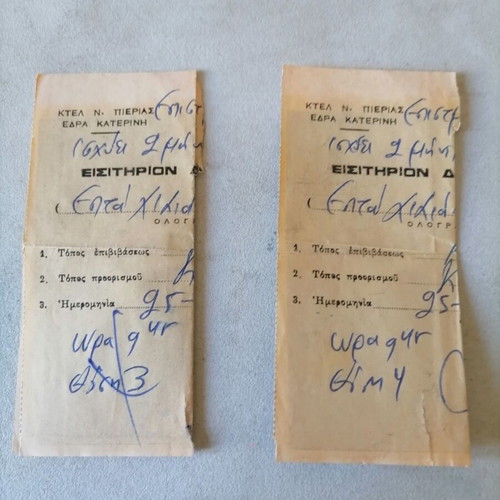 ΚΤΕΛ Ν. ΠΙΕΡΙΑΣ Επιστ
ΕΔΡΑ ΚΑΤΕΡΙΝΗ
ισχύει 2 μήν
ΕΙΣΙΤΗΡΙΟΝ Δ
( Επτά χιλιά
ΟΛΟΓΡ
1. Τόπος ἐπιβιβάσεως Κ
2. Τόπος προορισμοῦ
3. Ἡμερομηνία 25-
ωρα 9
θέση 3
ΚΤΕΛ Ν. ΠΙΕΡΙΑΣ Επιστ
ΕΔΡΑ ΚΑΤΕΡΙΝΗ
ισχύει 2 μήν
ΕΙΣΙΤΗΡΙΟΝ Δ
( Επτά χιλιά
ΟΛΟΓΡ
1. Τόπος ἐπιβιβάσεως Κ
2. Τόπος προορισμοῦ
3. Ἡμερομηνία 25-
ωρα 9
θέση 4